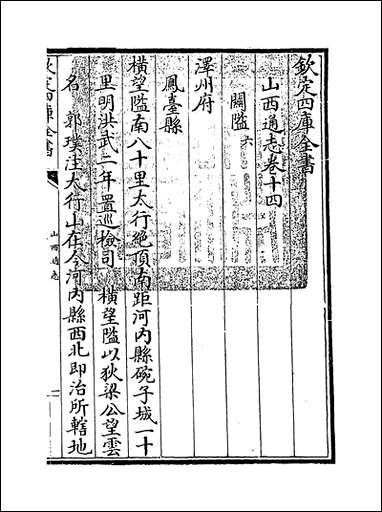 欽定四庫全書
山西通志卷十四
關隘六
澤州府
鳳臺縣
横望隘南八十里太行絶頂南距河内縣碗子城一十
里明洪武二年置巡檢司　横望隘以狄梁公望雲
名　郭璞注太行山在今河内縣西北即治所轄地
欽定四庫全書
山西通志